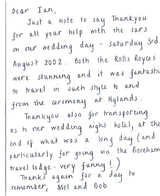 Dear Ian,
Just a note to say Thankyou
for all your help with the cars
on our wedding day - Saturday 3rd
August 2002. Both the Rolls Royces
were stunning and it was fantastic
to travel in such style to and
from the ceremony at Hylands.
Thankyou also for transporting
us to our wedding night hotel, at the
end of what was a long day (and
particularly for going via the Boreham
travel lodge - very funny!)
Thanks again for a day to
remember, Mel and Bob